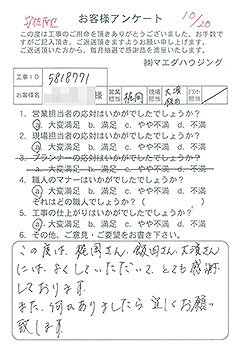 お客様アンケート
10/20
安佐南区
この度は工事のご用命を頂きありがとうございました。お手数で
すがご記入頂き、ご返送頂きますようお願い申し上げます。
ご返送頂いた方から、毎月抽選で感謝品を進呈いたします。
㈱マエダハウジング
工事ID 5818791
様 営業担当 梶岡 現場担当 大濱 飯田
1. 営業担当者の応対はいかがでしたでしょうか?
a. 大変満足 b. 満足 c. やや不満 d. 不満
2. 現場担当者の応対はいかがでしたでしょうか?
a. 大変満足 b. 満足 c. やや不満 d. 不満
3. プランナーの応対はいかがでしたでしょうか?
a. 大変満足 b. 満足 c. やや不満 d. 不満
4. 職人のマナーはいかがでしたでしょうか?
a. 大変満足 b. 満足 c. やや不満 d. 不満
それはどの職人でしょうか?( )
5. 工事の仕上がりはいかがでしたでしょうか?
a. 大変満足 b. 満足 c. やや不満 d. 不満
6. その他、ご意見・ご要望をお書き下さい。
この度は、梶岡さん、飯田さん、大濱さん
には、よくしていただいて、とても感謝
しております。
また、何かありましたら宜しくお願い
致します